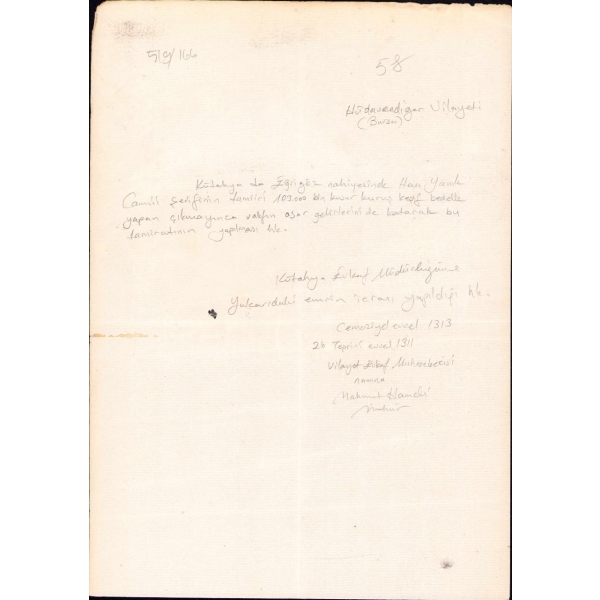 519/166
58
Hüdavendigar Vilayeti
(Bursa)
Kütahya da Eğrigöz nahiyesinde Hacı
Camii şerifinin tamiri 109.000 bin kuruş keşf bedelle
yapan çıkmayınca vakfın aşar gelirlerini de katarak bu
tamiratının yapılması hk.
Kütahya Evkaf Müdürlüğüne
Yukarıdaki emrin icrası yapıldığı hk.
Cemaziyel evvel 1313
26 Teşrini evvel 1311
Vilayet Evkaf Muhasebecisi
namına
Mahmut Hamdi